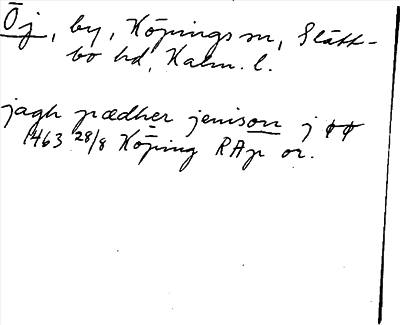 Öj, by, Köpings sn, Slätt-
bo hd, Kalm. l.
jagh pædher jenison j øø
1463 28/8 Köping RAp or.